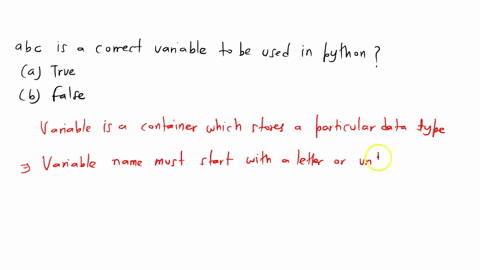 abc is a correct variable to be used in python?
(a) True
(b) False
Variable is a container which stores a particular data type
⇒ Variable name must start with a letter or